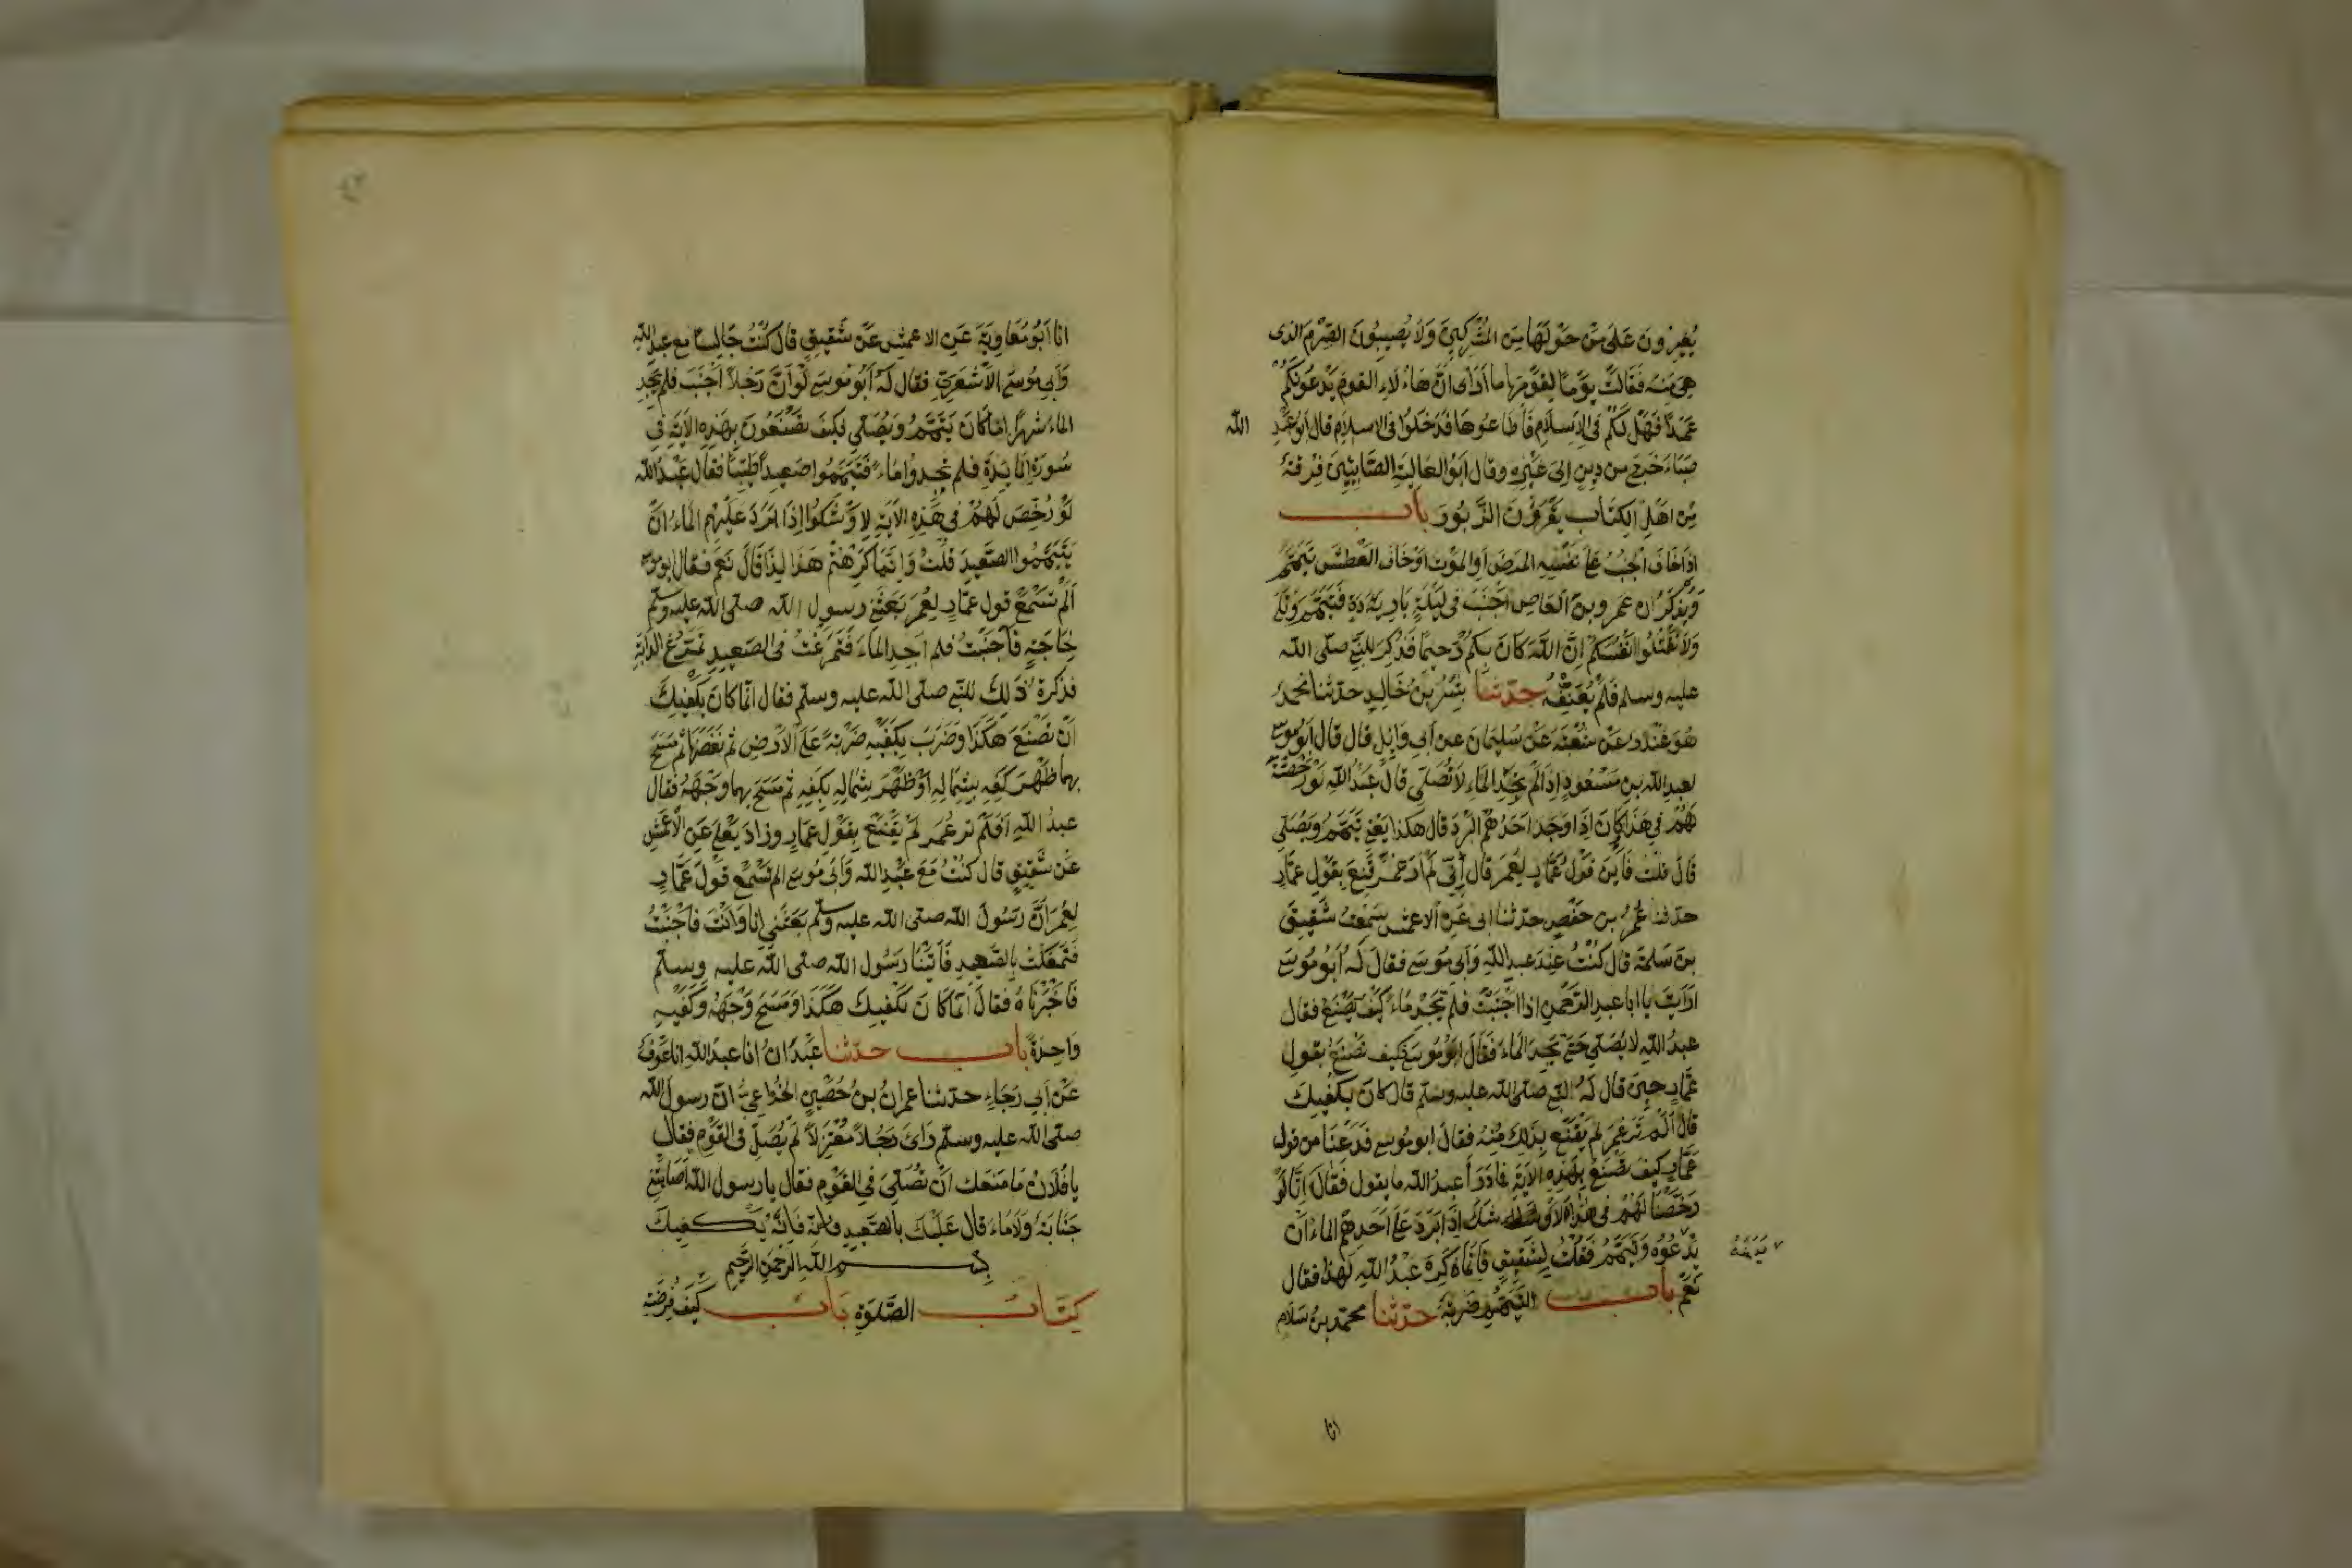 يُغِيرُونَ عَلَى مَنْ حَوْلَهَا مِنَ المُشْرِكِينَ وَلَا يُصِيبُونَ الصِّرْمَ الذى
هِىَ مِنهُ فَقَالَتْ يَوْمًا لِقَوْمِهَا ما أَرَاى اَنَّ هَاءُلَاءِ القوم يَدْعُونَكُمْ
عَمَدًا فَهَلْ لَكُمْ فى الاِسْلَامِ فَأَطَاعُوهَا فَدَخَلُوا فى الاسلام قال ابو عَبْدِ الله
صَبَاءَ خَرَجَ من دِينٍ اِلىَ غَيْرِهِ وقال ابَوُ العَالِيَةِ الصَّابِئِينَ فِرْقَةٌ
مِنْ اهَلِ الكِتَابِ يَقْرَؤُنَ الزَّبُورَ باب
اِذَا خَافَ الجُنُبُ عَلى نَفْسِهِ المَرَضَ اَوِ المَوْتَ اَوْ خَافَ العَطَشَ تَيَمَّمَ
وَيُذْكَرُ ان عَمْرو بنَ العَاصِ اَجْنَبَ فى لَيْلَةٍ بَارِدَةٍ فَتَيَمَّمَ وَتَلَا
وَلَا تَقْتُلُوا انْفُسَكُمْ اِنَّ اللَّهَ كَانَ بِكُمْ رَحِيمًا فَذُكِرَ للنَّبِىِّ صلى الله
عليه وسلم فَلَمْ يُعَنِّفْهُ حدّثنا بِشْرُ بنُ خَالِدٍ حدّثنا محمدٌ
هُوَ غُنْدَرٌ عَنْ شُعْبَةَ عَنْ سُلَيْمَانَ عن اَبِى وَايِلٍ قال قال ابَوُ موسى
لِعبدِ الله بنِ مَسْعُودٍ اِذَا لَمْ يَجِدِ المَاءَ لَا تُصَلِّى قالَ عَبْدُ اللهِ لَوْ رَخَّصْتُ
لَهُمْ فى هَذَا كَانَ اِذَا وَجَدَ اَحَدُهُمُ البَرْدَ قال هكذا يَعْنِى تَيَمَّمَ وَصَلَّى
قَالَ قلتُ فَاَيْنَ قَوْلُ عَمَّارٍ لِعُمَرَ قال اِنِّى لَمْ اَرَ عُمَرَ قَنِعَ بِقَوْلِ عمَّارٍ
حدّثنا عُمَرُ بن حَفْصٍ حدّثنا ابى عَنِ الاعمش سَمِعْتُ شَقِيقَ
بنَ سَلمَة قال كُنْتُ عِنْدَ عبدِ اللهِ وَاَبِى مُوسَى فقالَ لَهُ اَبُو مُوسَى
ارَاَيتَ يا ابا عبدِ الرَّحمنِ اذا اَجْنَبْتَ فلم تَجِدْ مَاءً كَيْفَ تَصْنَعُ فقال
عبدُ اللهِ لا يُصَلِّى حَتَّى يَجِدَ المَاءَ فَقَالَ ابَوُ مُوسَى فَكيفَ تَصْنَعُ بقولِ
عَمَّارٍ حِينَ قال لَهُ النَّبِى صلى الله عليه وسلم قال كَانَ يَكْفِيكَ
قالَ اَلَمْ تَرَ عُمَرَ لم يَقْنَعْ بِذَلِكَ مِنْهُ فقالَ ابو مُوسى فَدَعْنَا من قول
عَمَّارٍ كيفَ تَصْنَعُ بِهَذِهِ الايَةِ فَمَا دَرَاَ عبدُ الله ما يقول فَقَالَ اِنَّا لَوْ
رَخَّصْنَا لَهُمْ فى هذا لَاَوْشَكَ اِذَا بَرَدَ عَلَى اَحَدِهِمُ المَاءُ اَنْ
يَدَعَهُ
يَدْعُوْهُ وَيَتَيَمَّمُ فَقُلْتُ لِشَقِيقٍ فَاِنَّمَا كَرِهَ عَبْدُ اللهِ لِهَذَا فقال
نَعَمْ باب التَّيَمُّمِ ضَرْبَةً حدّثنا محمد بنُ سَلَام
انا
انا اَبُو مُعَاوِيَةَ عَنِ الاعمش عَنْ شَقِيقٍ قالَ كُنْتُ جَالِسًا مع عبدِ الله
وَاَبِى مُوسَى الاَشْعَرِىِّ فقال لَهُ اَبُو مُوسَى لَوْ اَنَّ رَجُلًا اَجْنَبَ فلم يَجِدِ
الماءَ شهرًا اَمَا كَانَ يَتَيَمَّمُ وَيُصَلِّى فكيفَ تصْنَعُونَ بِهَذِهِ الاَيَةِ فى
سُورَةِ المَائِدَةِ فلم تجِدُوا مَاءً فَتَيَمَّمُوا صَعِيدًا طَيِّبًا فقالَ عَبْدُ الله
لَوْ رُخِّصَ لَهُمْ فى هَذِهِ الاَيَةِ لاَوْشَكُوا اِذَا بَرَدَ عَلَيْهِمِ الماءُ اَنْ
يَتَيَمَّمُوا الصَّعِيدَ قُلْتُ وَاِنَّمَا كَرِهْتُمْ هَذَا لِذَا قَالَ نَعَم فقال ابو موسى
اَلَمْ تَسْمَعْ قول عمَّارٍ لِعُمَرَ بَعَثَنِى رسولُ الله صلى الله عليه وسلم
لِحَاجَةٍ فَاَجْنَبْتُ فلم اَجِدِ الماءَ فَتَمَرَّغْتُ فى الصَّعِيدِ تَمَرُّغَ الدَّابَّةِ
فذكرتُ ذَلِكَ للنَّبى صلى الله عليه وسلم فقال انما كَانَ يَكْفِيكَ
اَنْ تَصْنَعَ هَكَذَا وَضَرَبَ بِكَفَّيْهِ ضَرْبَةً عَلى الاَرْضِ ثم نَفَضَهَا ثُم مَسَحَ
بها ظَهْرَ كَفِّهِ بِشِمَالِهِ اَوْ ظَهْرَ شِمَالِهِ بِكَفِّهِ ثم مَسَحَ بهما وَجْهَهُ فقال
عبدُ اللهِ اَفَلَمْ تر عُمَر لَمْ يَقْنَعْ بِقَوْلِ عَمَّارٍ وزادَ يَعْلَى عَنِ الاَعمَشِ
عَنْ شَقِيقٍ قال كُنْتُ مَعَ عَبْدِ الله وَاَبِى مُوسَى الم تَسْمَعْ قولَ عَمَّارٍ
لِعُمَرَ اِنَّ رَسُولَ الله صلى الله عليه وسلم بَعَثَنِى انا وَاَنْتَ فاَجْنَبْتُ
فَتَمَعَّكْتُ بِالصَّعِيدِ فَاَتَيْنَا رَسُولَ الله صلى الله عليه وسلم
فَاَخْبَرْنَاهُ فقالَ اِنَّمَا كَانَ يَكْفِيكَ هَكَذَا وَمَسَحَ وَجْهَهُ وَكَفَّيْهِ
وَاحِدَةً باب حدّثنا عَبْدَانُ انا عبدُ اللهِ انا عَوْفٌ
عَنْ اَبِى رَجَاءٍ حدّثنا عِمرانُ بنُ حُصَيْنٍ الخُزَاعِىُّ اَنّ رسولَ الله
صلى الله عليه وسلم رَاَى رَجُلاً مُعْتَزِلاً لَمْ يُصَلِّ فى القَوْمِ فقال
يا فُلَانُ مَا مَنَعَكَ اَنْ تُصَلِّىَ فى القَوْمِ فقال يا رسول الله اَصَابَتْنِى
جَنَابَةٌ وَلَا مَاءَ قال عَلَيْكَ بِالصَّعِيدِ فَاِنَّهُ يَكْفِيكَ
بِسْمِ اللهِ الرَّحْمنِ الرَّحِيمِ
كِتَابُ الصَّلوٰةِ بَابُ كَيْفَ فُرِضَتِ